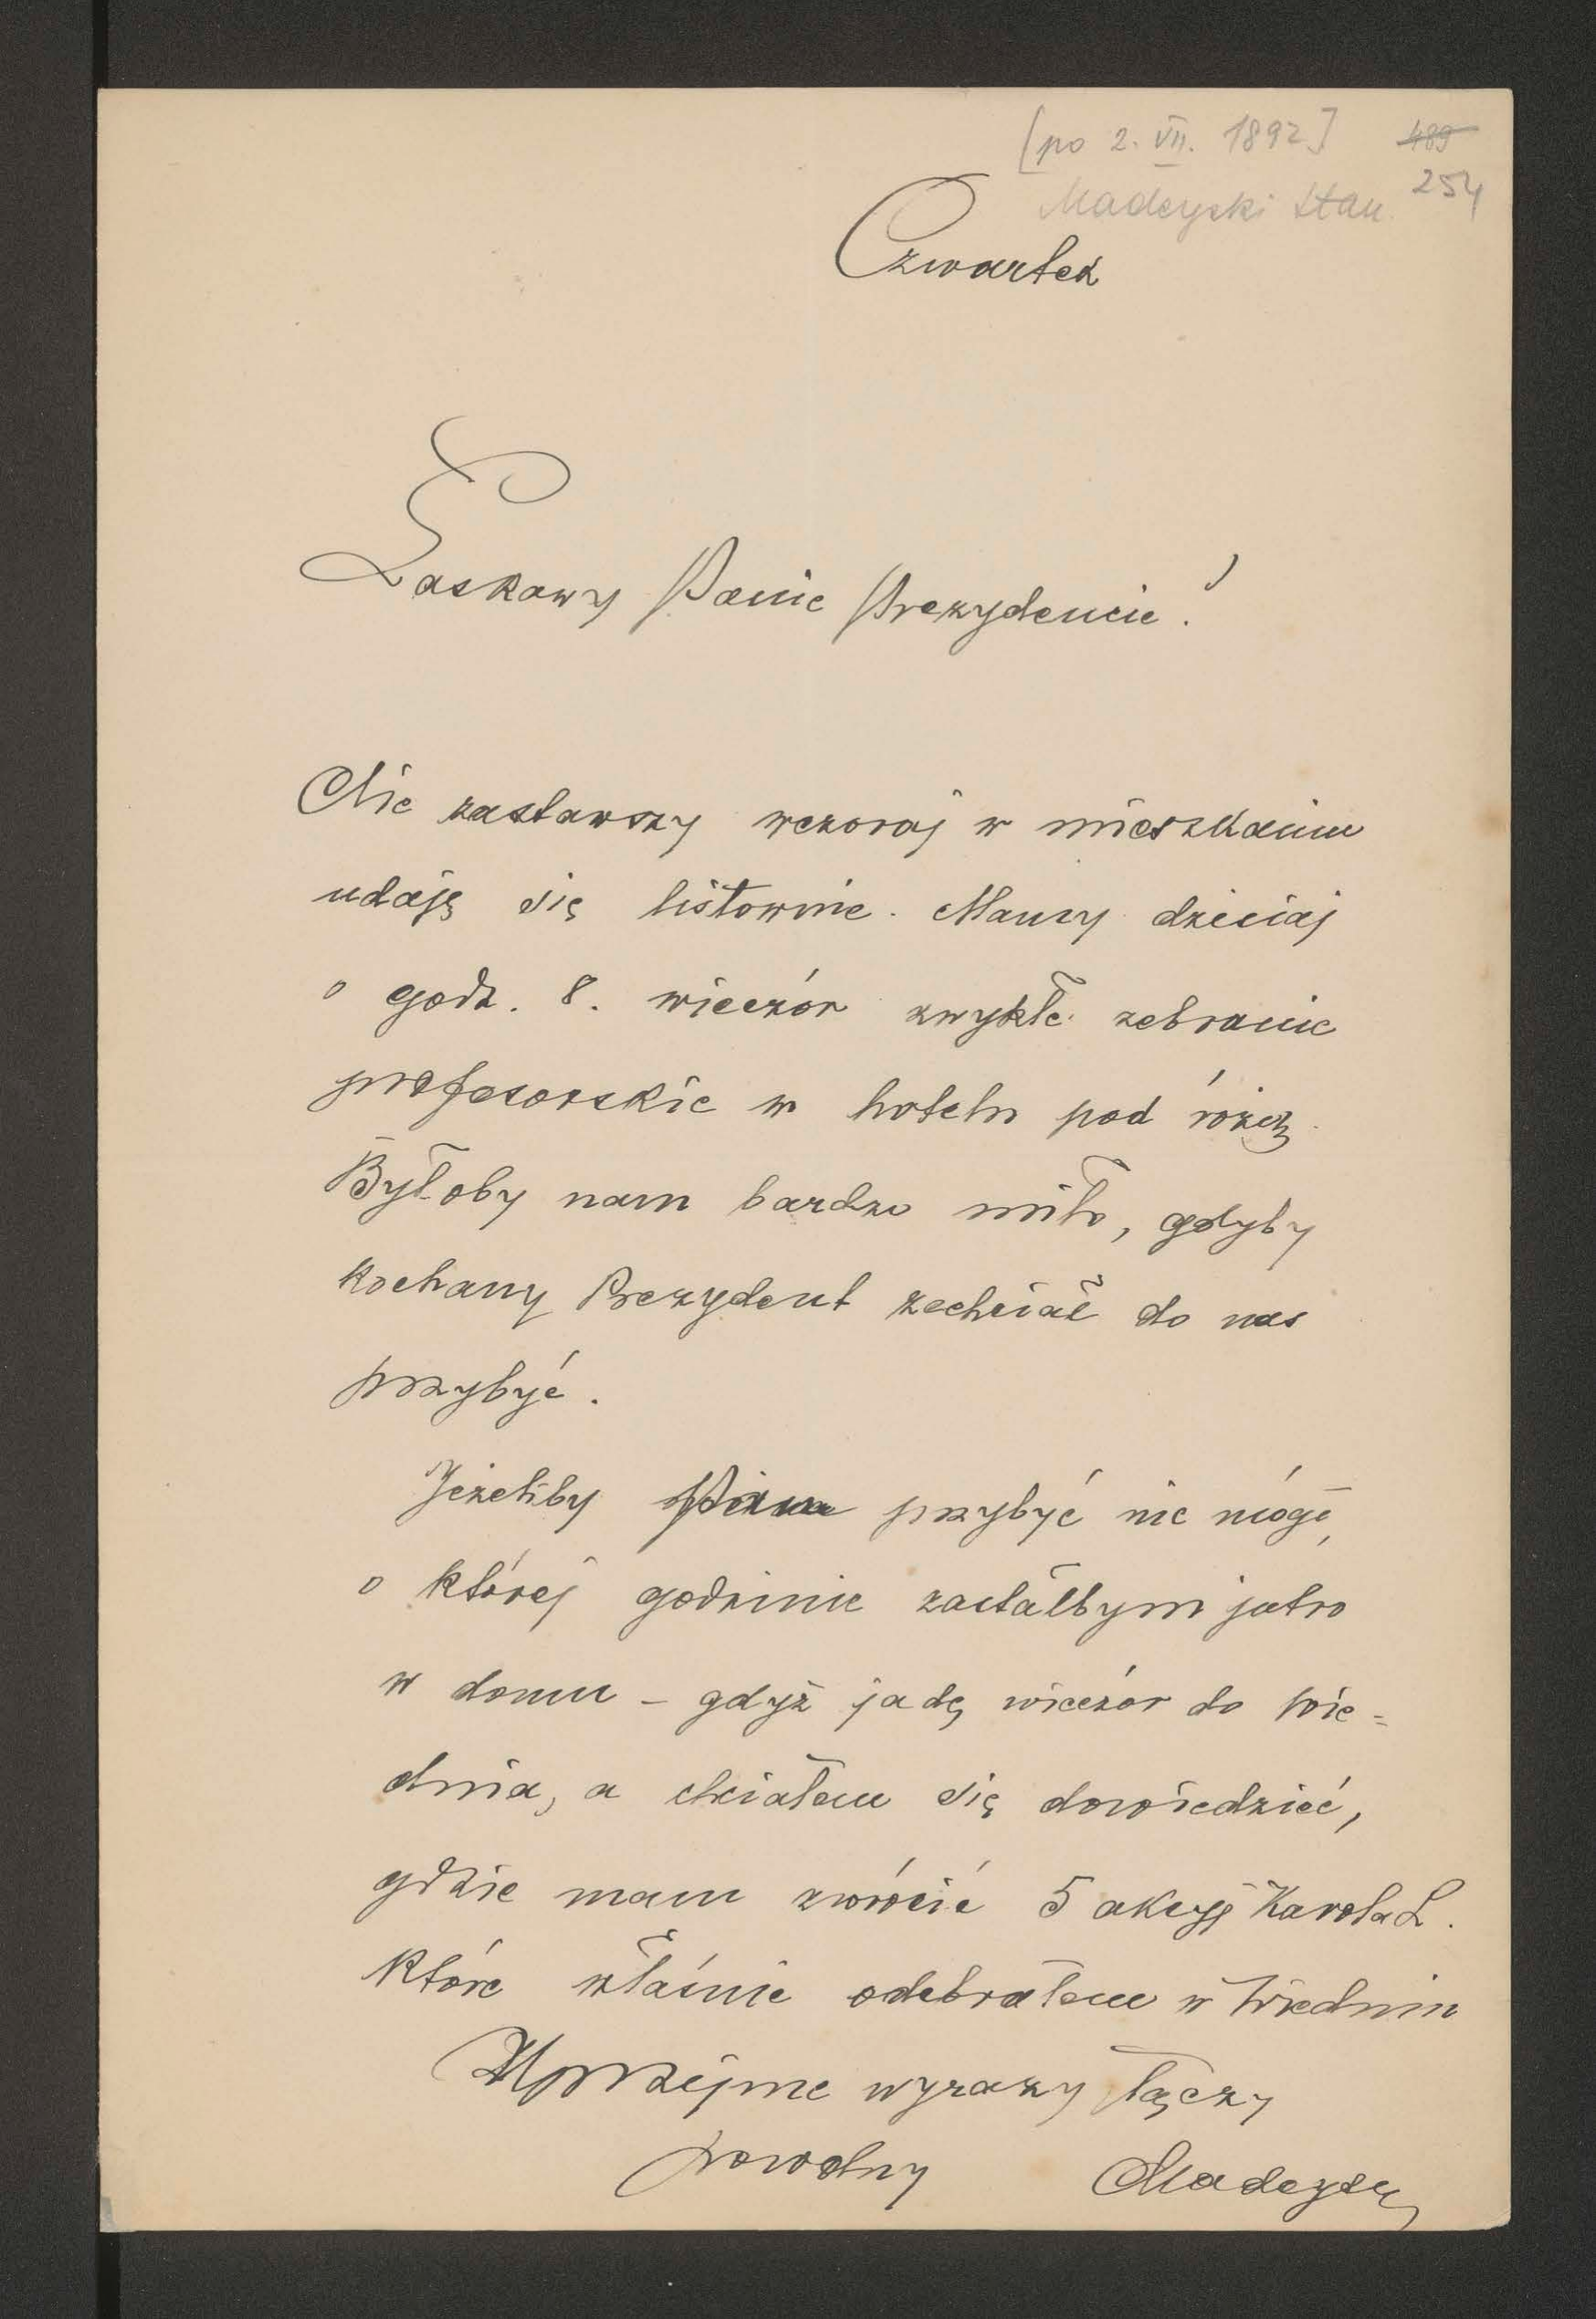 [po 2. VII. 1892]
489
254
Madeyski Stan.
Czwartek
Łaskawy Panie Prezydencie!
Nie zastawszy wczoraj w mieszkaniu
udaję się listownie. Mamy dzisiaj
o godz. 8. wieczór zwykłe zebranie
profesorskie w hotelu pod różą.
Byłoby nam bardzo miło, gdyby
kochany Prezydent zechciał do nas
przybyć.
Jeżeliby przybyć nie mógł,
o której godzinie zastałbym jutro
w domu – gdyż jadę wieczór do Wie=
dnia, a chciałem się dowiedzieć,
gdzie mam zwrócić 5 akcyj Karola L.
które właśnie odebrałem w Wiedniu
Uprzejme wyrazy łączy
powolny Madeyski